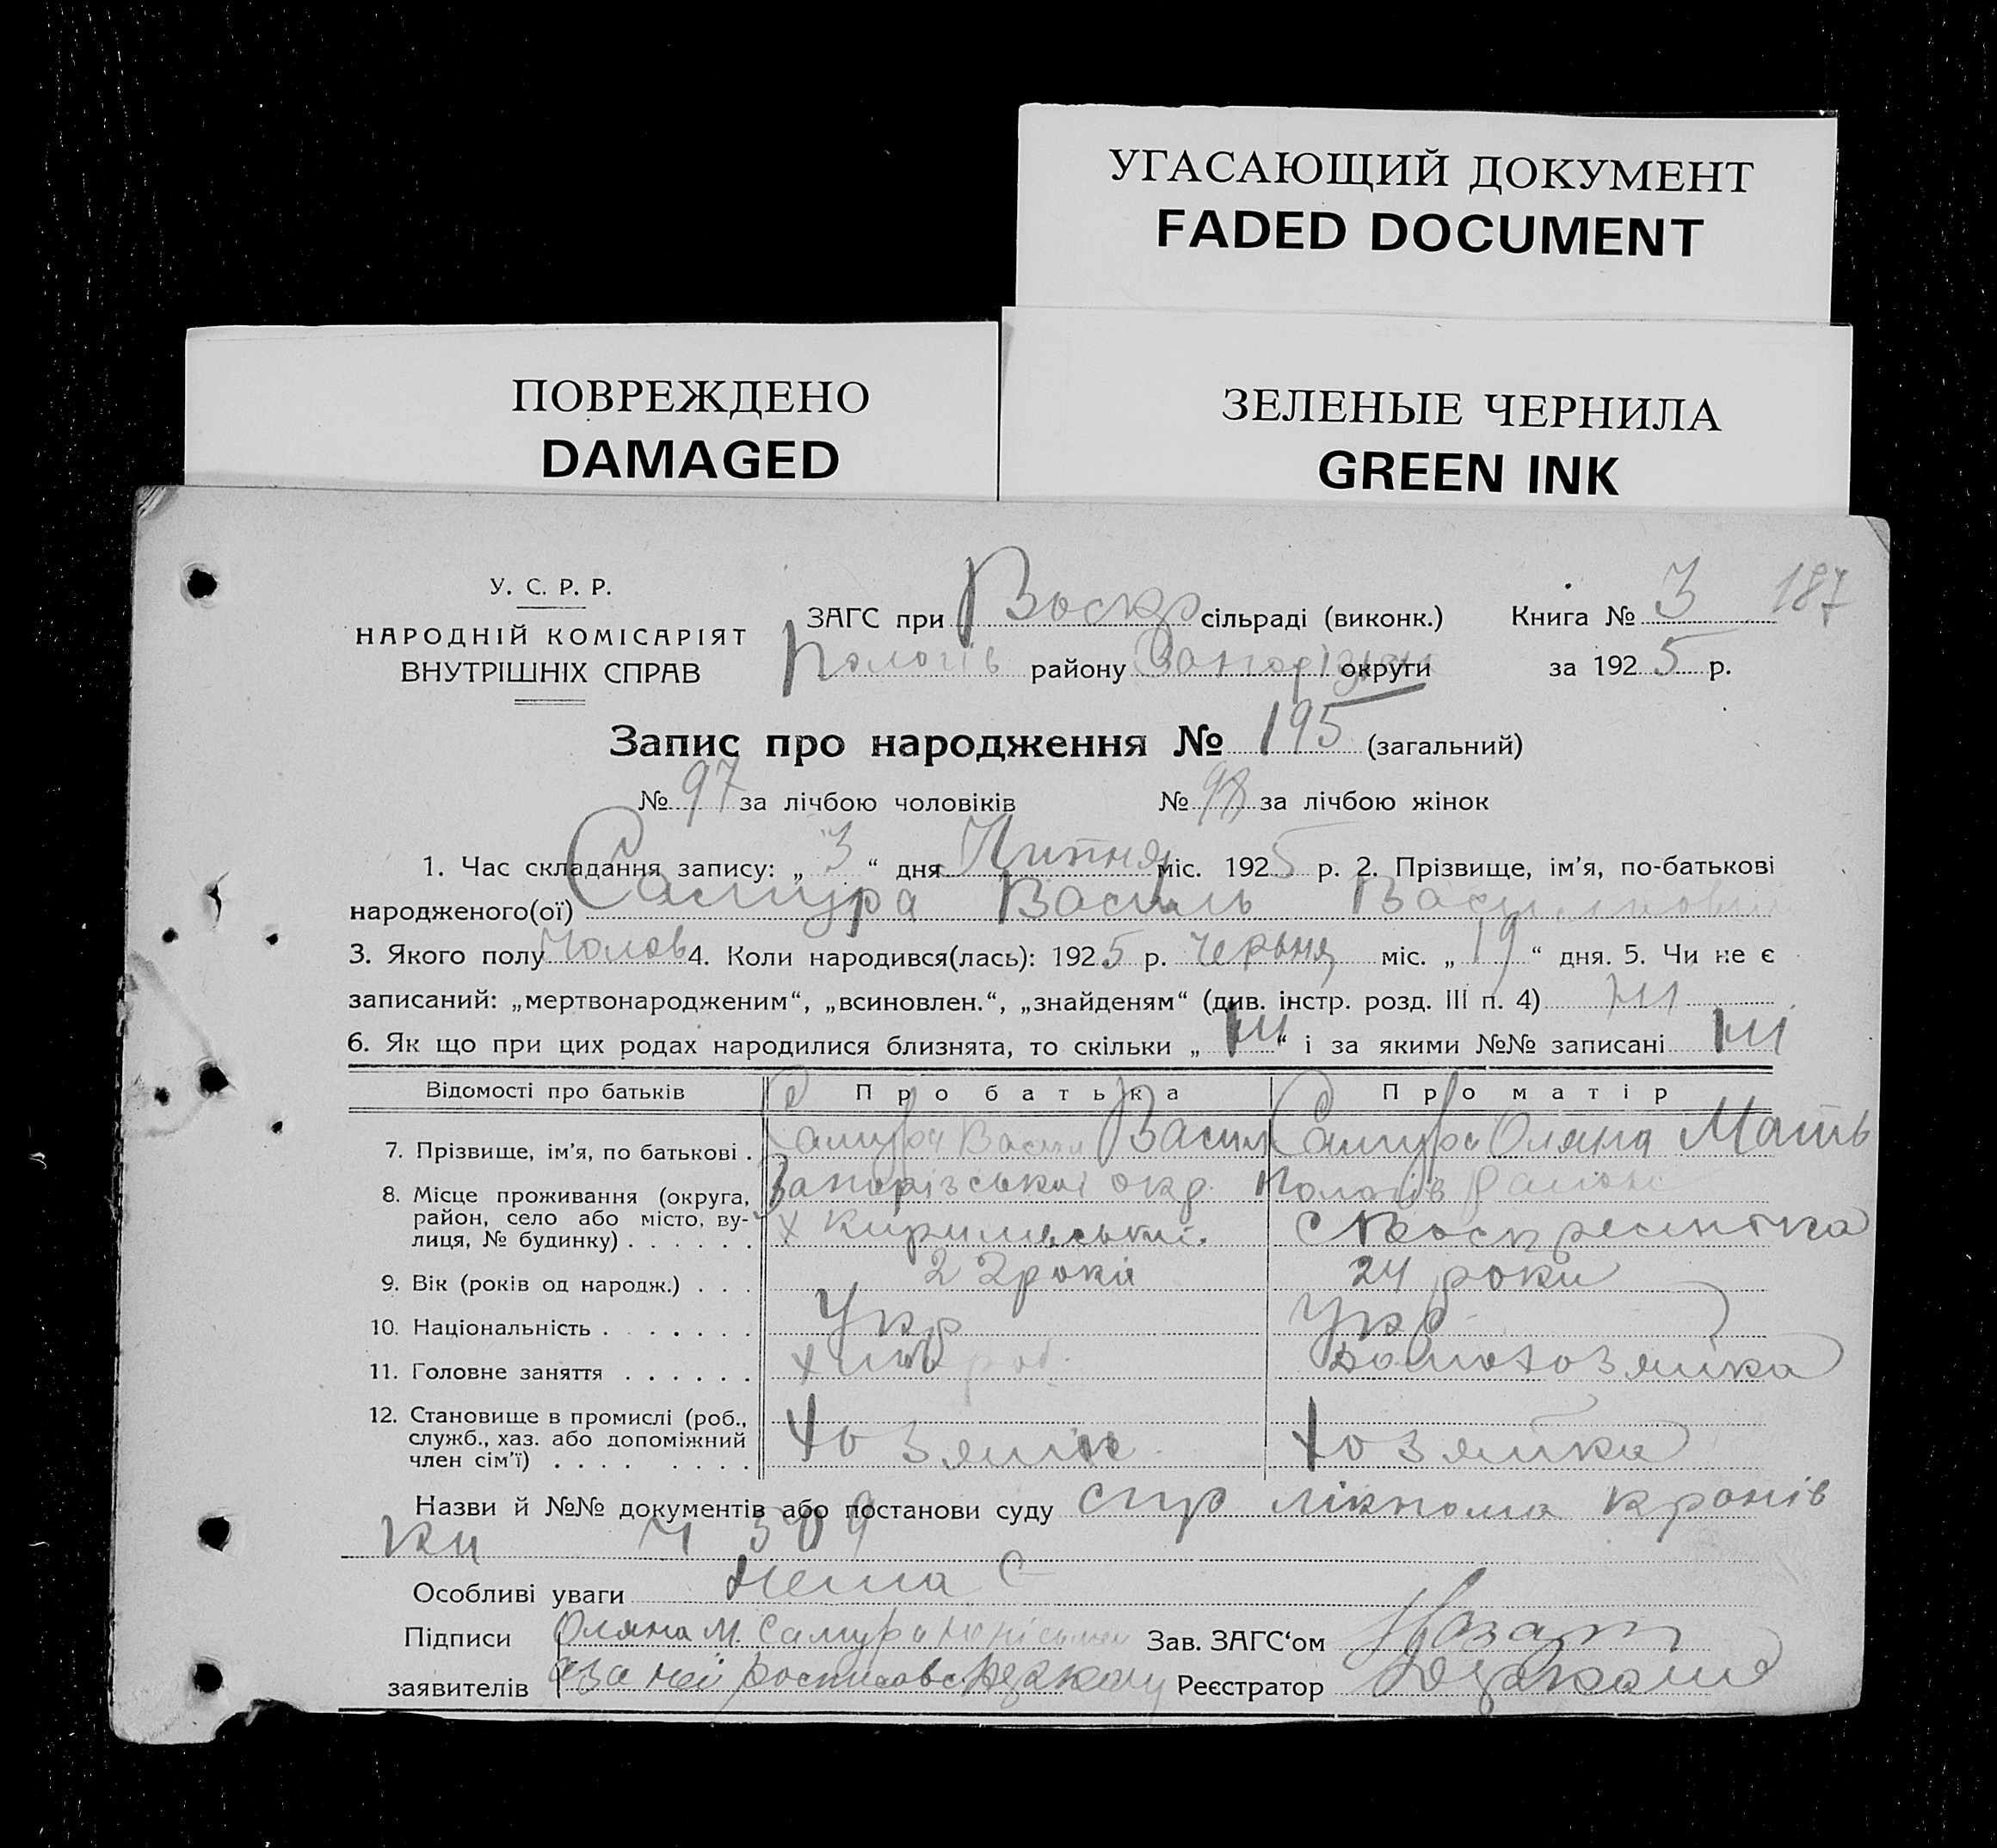 УГАСАЮЩИЙ ДОКУМЕНТ
FADED DOCUMENT
ПОВРЕЖДЕНО
DAMAGED
ЗЕЛЕНЫЕ ЧЕРНИЛА
GREEN INK
У. С. Р. Р.
НАРОДНІЙ КОМІСАРІЯТ
ВНУТРІШНІХ СПРАВ
ЗАГС при Воскр сільраді (виконк.) Книга № 3 187
Пологів району Запоріз округи за 1925 р.
Запис про народження № 195 (загальний)
№ 97 за лічбою чоловіків № 98 за лічбою жінок
1. Час складання запису: „ 3 “ дня Липня міс. 1925 р. 2. Прізвище, ім’я, по-батькові
народженого(ої) Самура Василь
3. Якого полу Чолов 4. Коли народився(лась): 1925 р. Червня міс. „ 19 “ дня. 5. Чи не є
записаний: „мертвонародженим“, „всиновлен.“, „знайденям“ (див. інстр. розд. III п. 4) Ні
6. Як що при цих родах народилися близнята, то скільки „ Ні “ і за якими №№ записані Ні
Відомості про батьків Про батька Про матір
7. Прізвище, ім’я, по батькові . Самура Васил Васил Самура Оляна Матв
8. Місце проживання (округа, Запорізської окр. Пологів району
район, село або місто, ву- х Кирилівський с Воскресинтка
лиця, № будинку) . . . . . .
9. Вік (років од народж.) . . . 22 роки 24 роки
10. Національність . . . . . . . Укр Укр
11. Головне заняття . . . . . . хліб роб. домохозяйка
12. Становище в промислі (роб., Хозяин Хозяйка
служб., хаз. або допоміжний
член сім’ї) . . . . . . . .
Назви й №№ документів або постанови суду спр лікпома
309
Особливі уваги Нема
Підписи Оляна М. Самура Зав. ЗАГС‘ом
заявителів а за неї росписовс Реєстратор